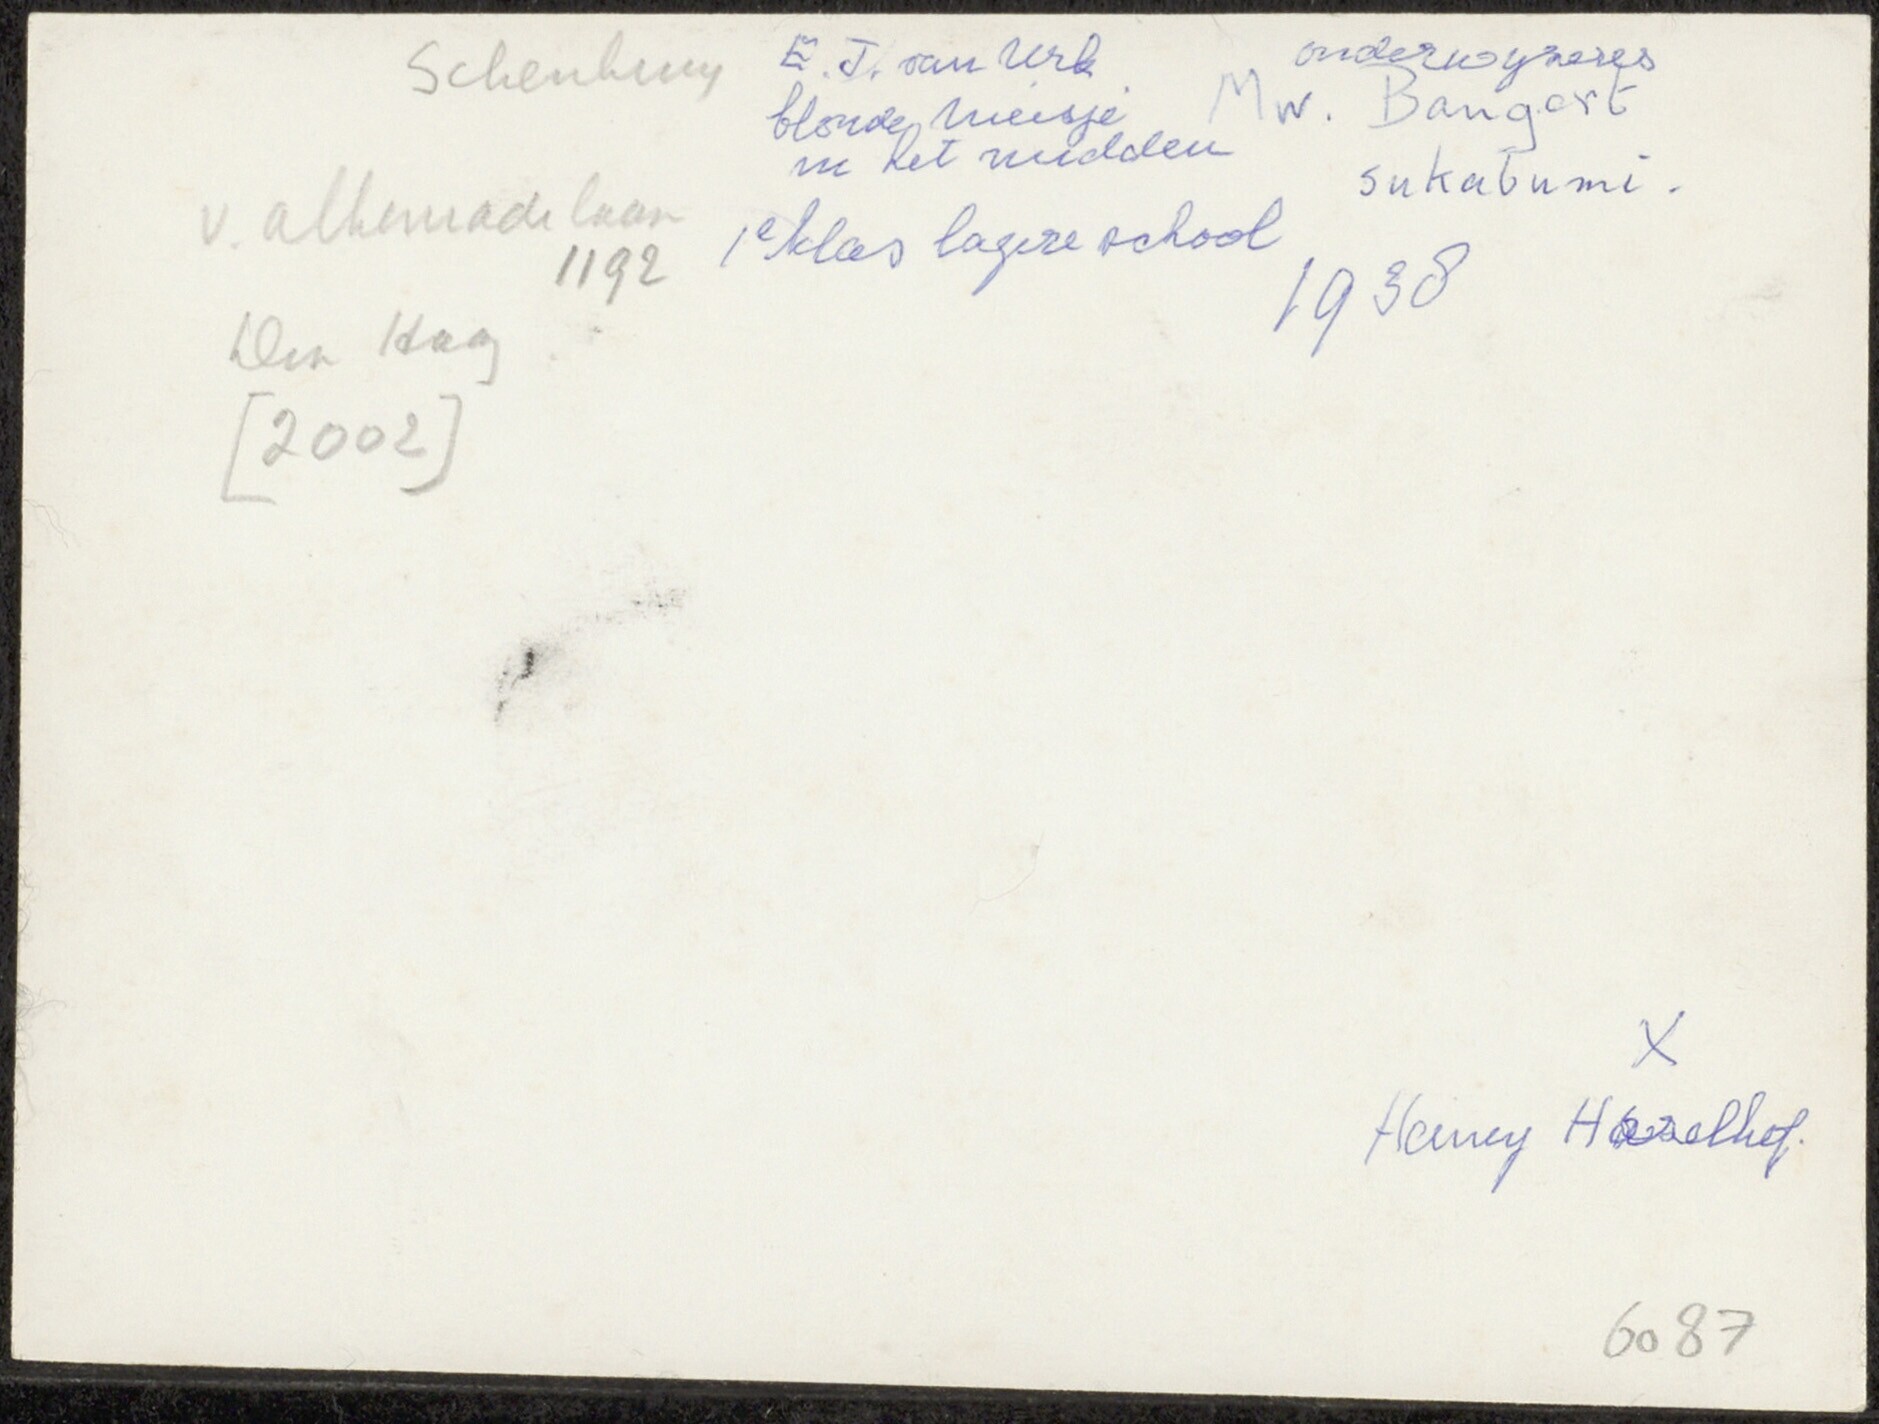 Schenking
v. Alkemadelaan
1192
Den Haag
[2002]
E. J. van Urk
blonde meisje
in het midden
1e klas lagere school
1938
onderwyzeres
Mw. Bangert
sukabumi.
X
Henny Hazelhof.
6087